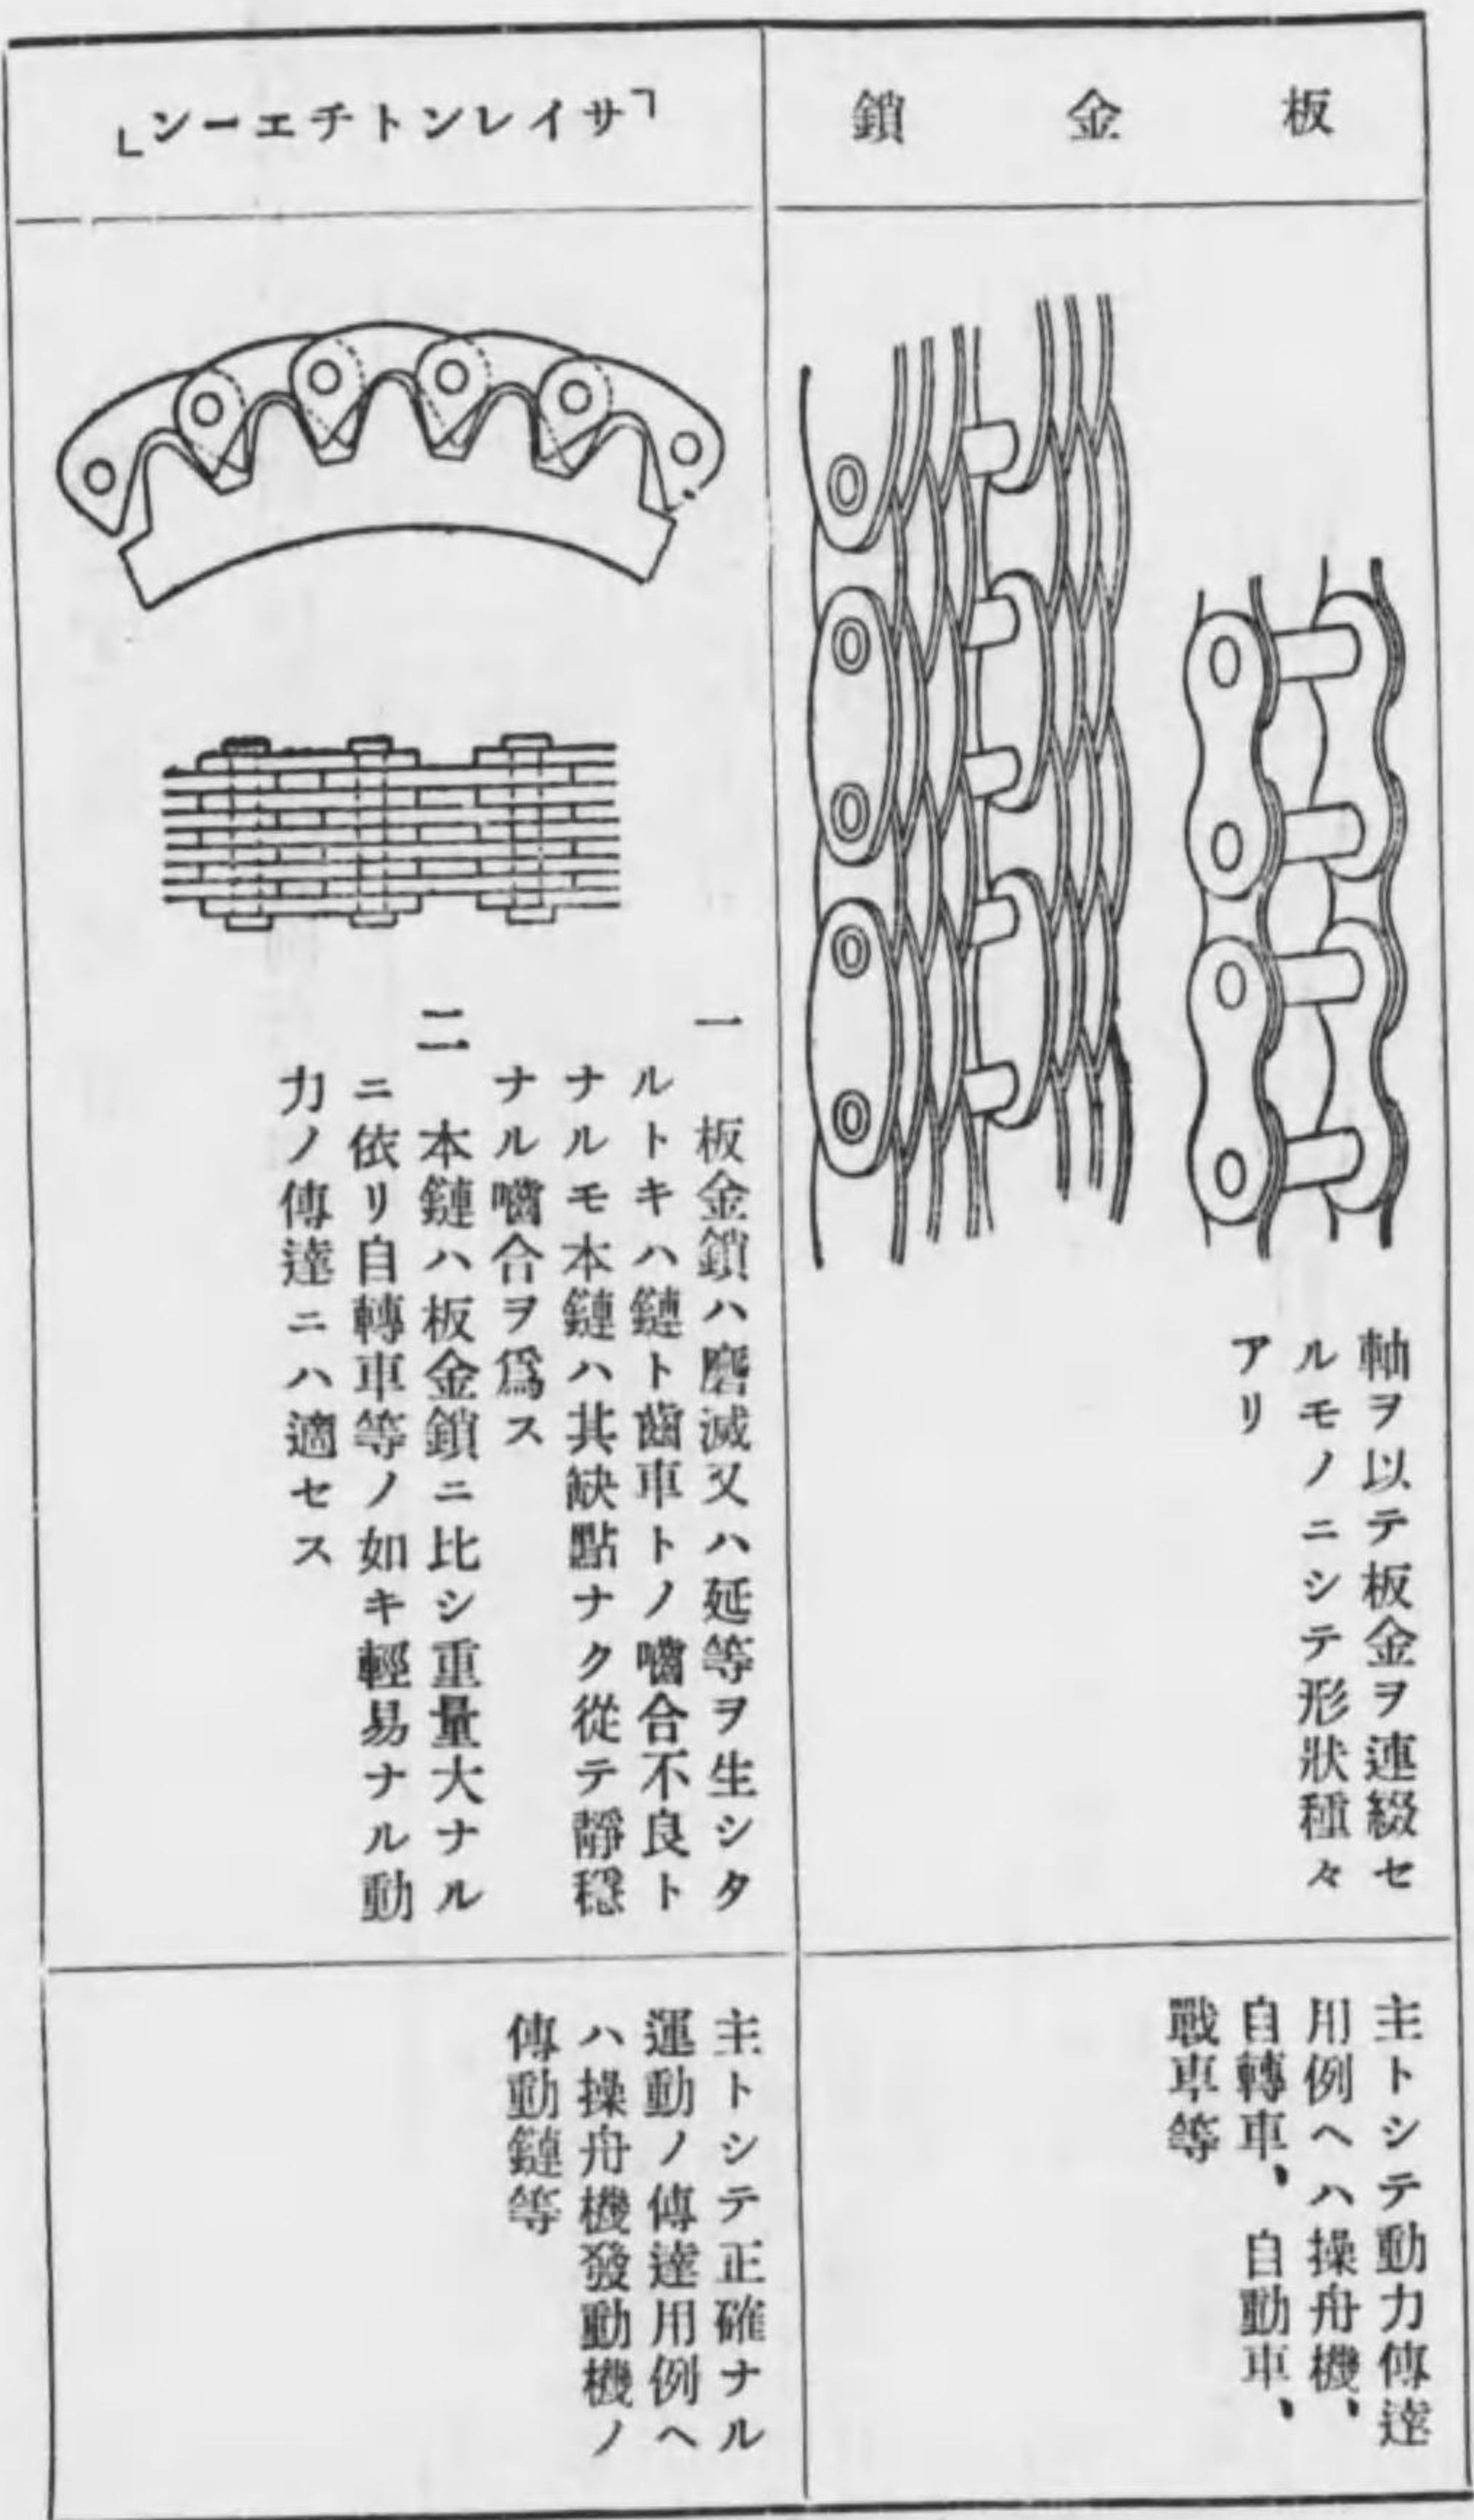 板金鎖
軸ヲ以テ板金ヲ連綴セ
ルモノニシテ形狀種々
アリ
主トシテ動力傳達
用例ヘハ操舟機、
自轉車、自動車、
戰車等
「サイレントチエーン」
一　板金鎖ハ磨滅又ハ延等ヲ生シタ
ルトキハ鏈ト齒車トノ嚙合不良ト
ナルモ本鏈ハ其缺點ナク從テ靜穩
ナル嚙合ヲ爲ス
二　本鏈ハ板金鎖ニ比シ重量大ナル
ニ依リ自轉車等ノ如キ輕易ナル動
力ノ傳達ニハ適セス
主トシテ正確ナル
運動ノ傳達用例ヘ
ハ操舟機發動機ノ
傳動鏈等